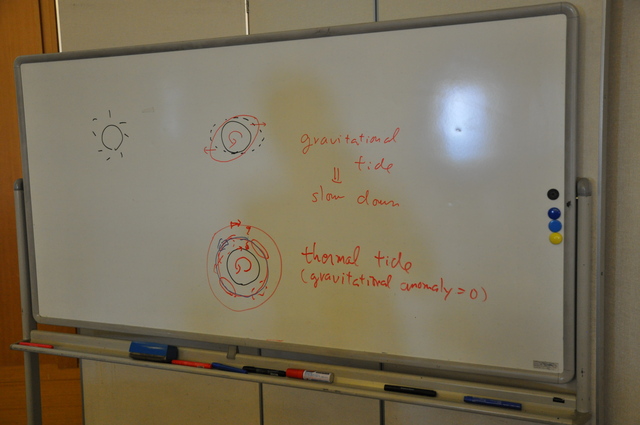 gravitational
tide
⇓
slow down
thermal tide
(gravitational anomaly = 0)